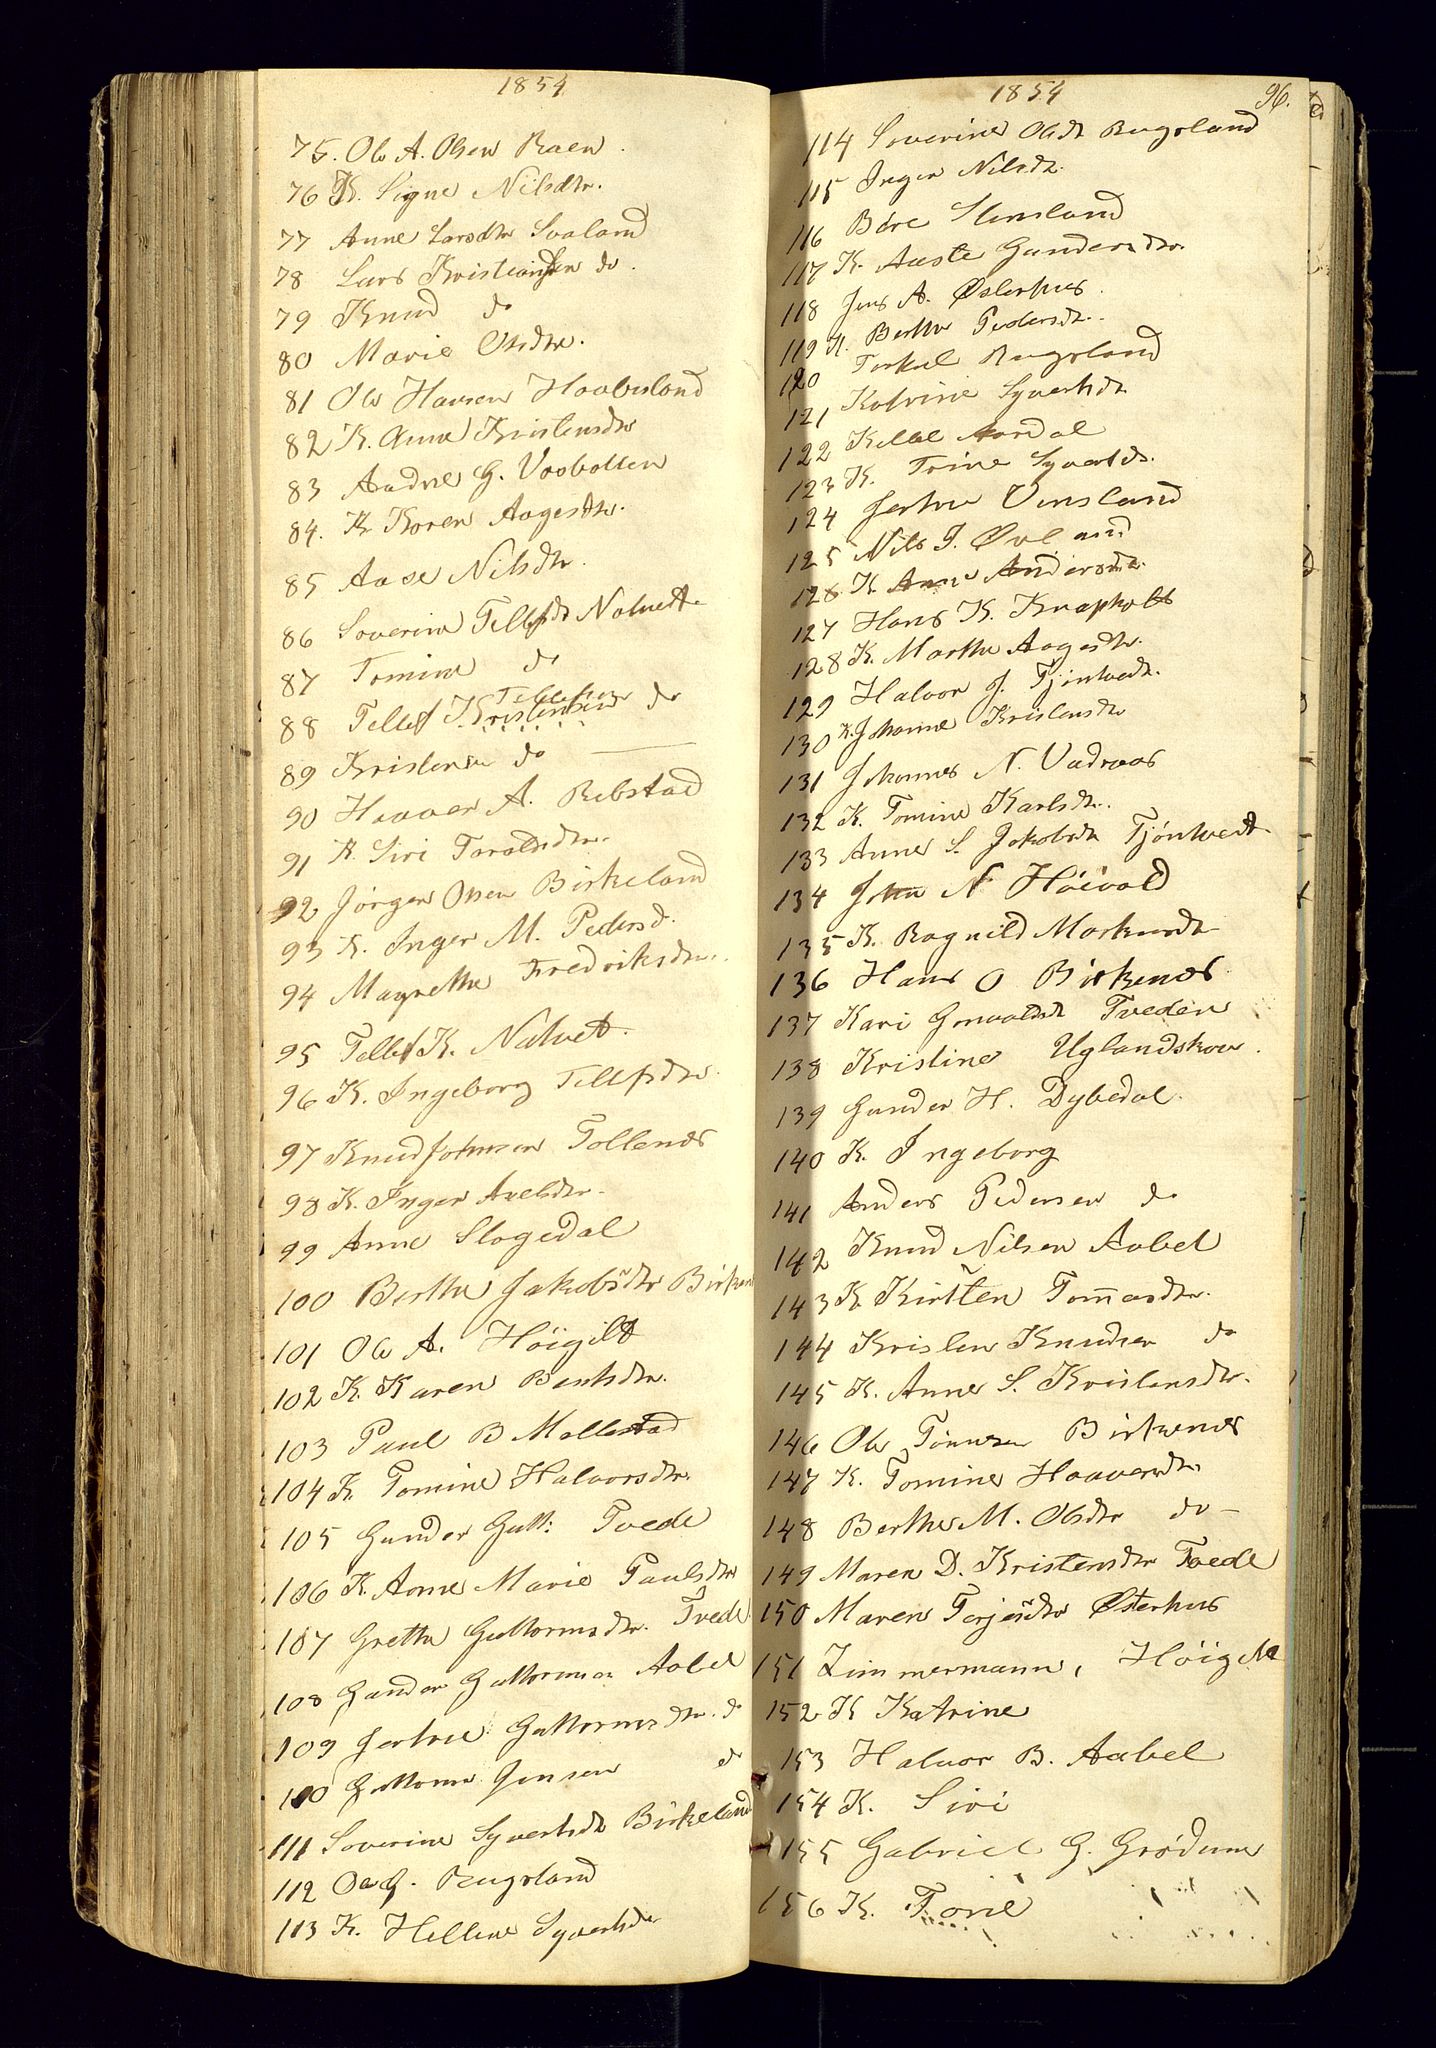 1854
75. Ole A. Olsen Raen.
76 K. Signe Nilsdtr.
77 Anne Larsdtr Svaland
78 Lars Kristiansen do.
79 Knud do
80 Marie Olsdtr.
81 Ole Hansen Haabesland
82 K. Anne Kristensdtr
83 Aadne G. Vasbotten
84. K Karen Aagesdtr.
85 Aase Nilsdtr.
86 Soverine Tellefsdtr Natvedt
87 Tomine do
88 Tellef Kristensen Tellefsen do
89 Kristense do
90 Haaver A. Ribstad
91 K. Siri Taraldsdtr.
92 Jørgen Olsen Birkeland
93 K. Inger M. Pedersd.
94 Magrethe Fredriksdtr.
95 Tellef K. Natvedt.
96 K. Ingeborg Tellefsdtr.
97 Knud Johnsen Tollenæs
98 K. Inger Axelsdtr.
99 Anne Slogedal
100 Berthe Jakobsdtr Birken
101 Ole A. Höigilt
102 K. Karen Bentsdtr.
103 Paul B Mollestad
104 K. Tomine Halvorsdtr.
105 Gunder Gutt: Tvede
106 K. Anne Marie Paulsdtr
107 Grethe Guttormsdtr. Tvede
108 Gunder Guttormsen Aabel
109 Jertrue Guttormsdtr. do
110 Guttorm Jensen do
111 Soverine Syvertsdtr Birkeland
112 Ole G. Rugsland
113 K. Hellene Syvertsdtr
1854 96.
114 Soverine Olsdtr Rugsland
115 Inger Nilsdtr.
116 Børe Stensland
117 K. Aaste Gundersdtr.
118 Jens A. Østerhus.
119 K. Berthe Pedersdtr.
120 Torkel Rugsland
121 Katrine Syvertsdtr
122 Kittel Aardal
123 K. Trine Syvertsdr.
124 Jertrue Vinsland
125 Nils J. Øvland
126 K. Anne Andersdtr.
127 Hans K. Knapholt
128 K. Marthe Aagesdtr.
129 Halvor J. Tjintvedt.
130 K. Johanne Kristensdtr
131 Johannes N. Vadraas
132 K. Tomine Karlsdtr.
133 Anne S. Jakobsdtr Tjöntvedt
134 John N Höivold
135 K. Ragnild Markusdtr
136 Hans O Birkenæs.
137 Kari Gonvaldsdtr Tveden
138 Kristine Uglandskov.
139 Gunder H. Dybedal.
140 K. Ingeborg
141 Anders Pedersen do
142 Knud Nilsen Aabel
143 K. Kirsten Tom̄asdtr.
144 Kristen Knudsen do
145 K. Anne S. Kristensdtr.
146 Ole Tönnesen Birkenæs
147 K. Tomine Haaversdtr.
148 Berthe M. Olsdtr do
149 Maren D. Kristensdtr Tvede
150 Maren Terjesdtr Østerhus
151 Zimmermann, Höigilt
152 K Katrine
153 Halvor B. Aabel
154 K. Siri
155 Gabriel G. Grödum
156 K. Toril